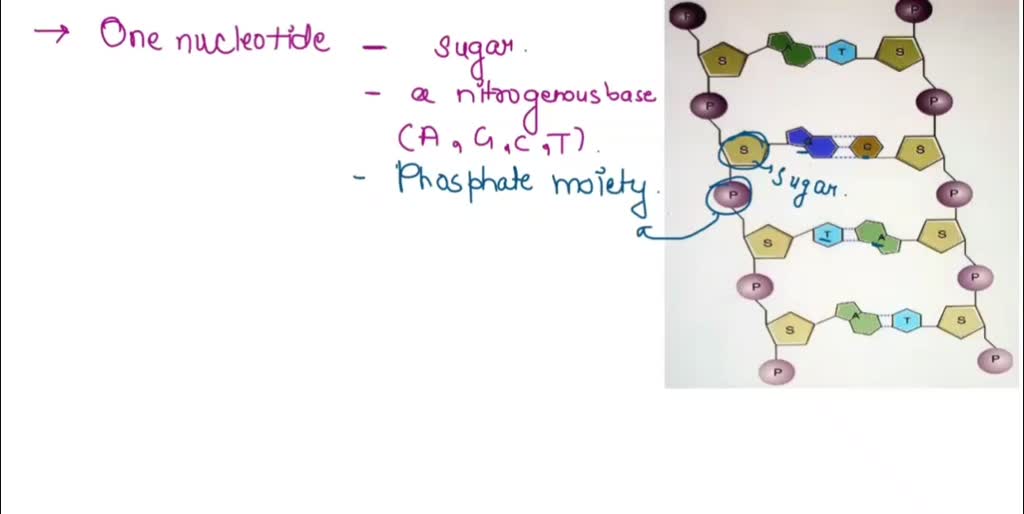 → One nucleotide - sugar.
- a nitrogenous base
(A, G, C, T).
- Phosphate moiety.
P P
S A T S
P P
S G C S
sugar.
P P
S T A S
P P
S A T S
P P